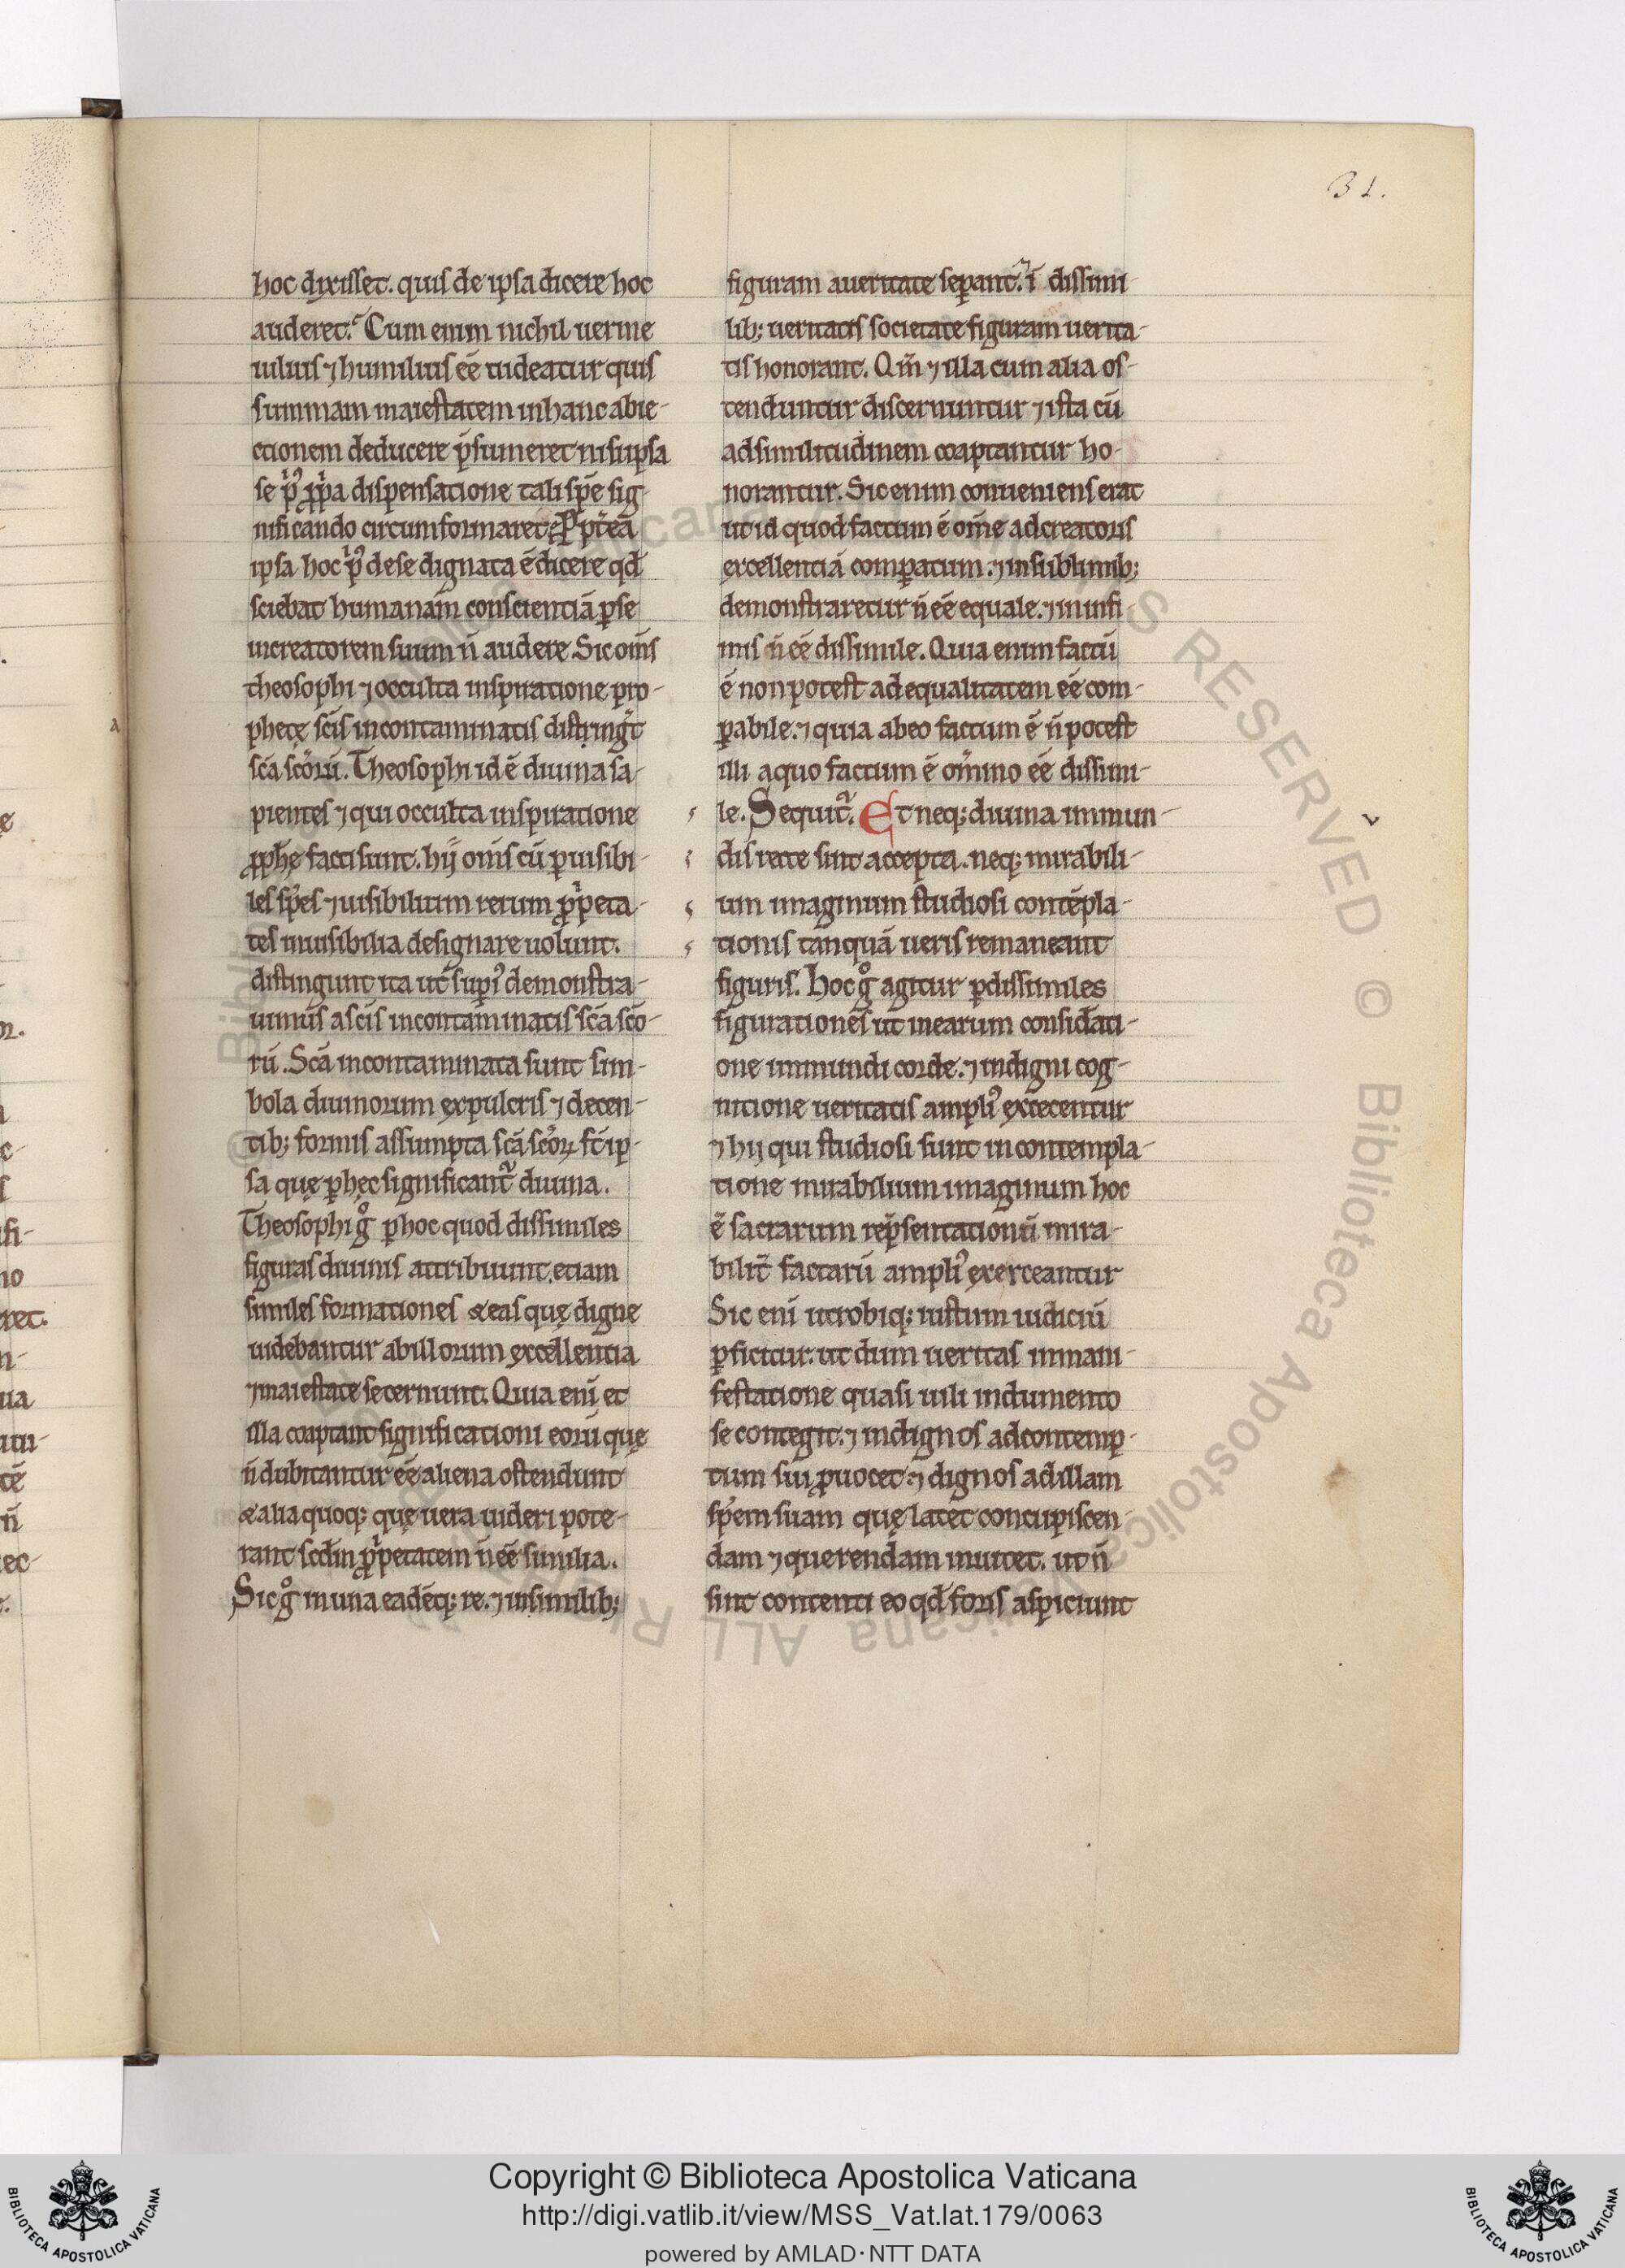 31.
hoc dixisset. quis de ipsa dicere hoc
auderet? Cum enim nichil uerme
uilius ⁊ humilius eē uideatur quis
summam maiestatem in hanc abie-
ctionem deducere p̄sumeret nisi ipsa
se p̄ ꝓp̄a dispensatione tali spē sig-
nificando circumformaret. Ꝓpt̄ea
ipsa hoc p̄ de se dignata ē dicere qđ
sciebat humanam̄ conscientiā ꝑ se
in creatorem suum n̄ audere. Sic om̄s
theosophi ⁊ occulta inspiratione pro-
phetę sc̄is incontaminatis distringūt
sc̄a sc̄orū. Theosophi id ē diuina sa-
pientes ⁊ qui occulta inspiratione
ꝓphę facti sunt. hij om̄s cū ꝑ uisibi-
les spēs ⁊ uisibilium rerum ꝓpeta-
tes inuisibilia designare uolunt.
distingunt ita ut supꝰ demonstra-
uimus a sc̄is incontaminatis sc̄a sc̄o-
rū. Sc̄a incontaminata sunt sim-
bola diuinorum ex pulcris ⁊ decen-
tib; formis assumpta sc̄a sc̄oꝝ st̄ ip-
sa quę ꝑ hęc significant̄ diuina.
Theosophi gͦ ꝑ hoc quod dissimiles
figuras diuinis attribuunt. etiam
similes formationes & eas quę digne
uidebantur ab illorum excellentia
⁊ maiestate secernunt. Quia enī et
illa coaptant significationi eorū quę
n̄ dubitantur eē aliena ostendunt
& alia quoq; quę uera uideri pote-
rant sed in ꝓpetatem n̄ eē similia.
Sic gͦ in una eadēq; re. ⁊ in similib;
figuram a ueritate sepant. ⁊ ī dissimi-
lib; ueritatis societate figuram uerita-
tis honorant. Qm̄ ⁊ illa cum alia os-
tenduntur discernuntur ⁊ ista cū
ad similitudinem coaptantur ho-
norantur. Sic enim conueniens erat
ut id quod factum ē om̄e ad creatoris
excellentiā comꝑatum. ⁊ in sublimib;
demonstraretur n̄ eē equale. ⁊ in infi-
mis n̄ eē dissimile. Quia enim factū
ē non potest ad equalitatem eē com-
ꝑabile. ⁊ quia ab eo factum ē n̄ potest
illi a quo factum ē om̄ino eē dissimi-
le. Sequit̄. Et neq; diuina immun-
dis recte sint accepta. neq; mirabili-
um imaginum studiosi contēpla-
tionis tanquā ueris remaneant
figuris. Hoc gͦ agitur ꝑ dissimiles
figurationes ut in earum consid̄ati-
one immundi corde. ⁊ indigni cog-
nitione ueritatis ampliꝰ excecentur
⁊ hij qui studiosi sunt in contempla-
tione mirabilium imaginum hoc
ē sacrarum rep̄sentationū mira-
bilit̄ factarū ampliꝰ exerceantur
Sic enī utrobiq; iustum iudiciū
ꝑficitur. ut dum ueritas in mani-
festatione quasi uili indumento
se contegit. ⁊ indignos ad contemp-
tum sui ꝓuocet. ⁊ dignos ad illam
spēm suam quę latet concupiscen-
dam ⁊ querendam inuitet. ut n̄
sint contenti eo qđ foris aspiciunt
Copyright © Biblioteca Apostolica Vaticana
http://digi.vatlib.it/view/MSS_Vat.lat.179/0063
powered by AMLAD·NTT DATA